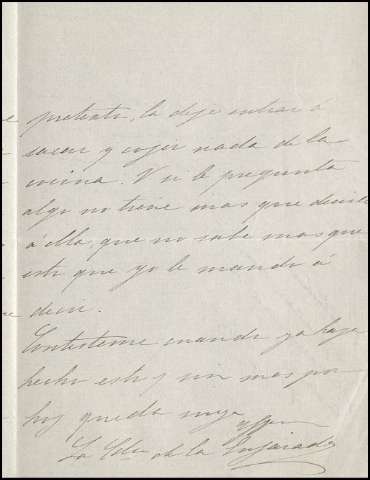 pretesto, la deje entrar á
sacar y cojer nada de la
cocina. Y si le pregunta
algo no tiene mas que decirle
á ella, que no sabe mas que
esto que yo le mando á
decir.
Contesteme cuando ya haya
hecho esto y sin mas por
hoy queda suya
La de la